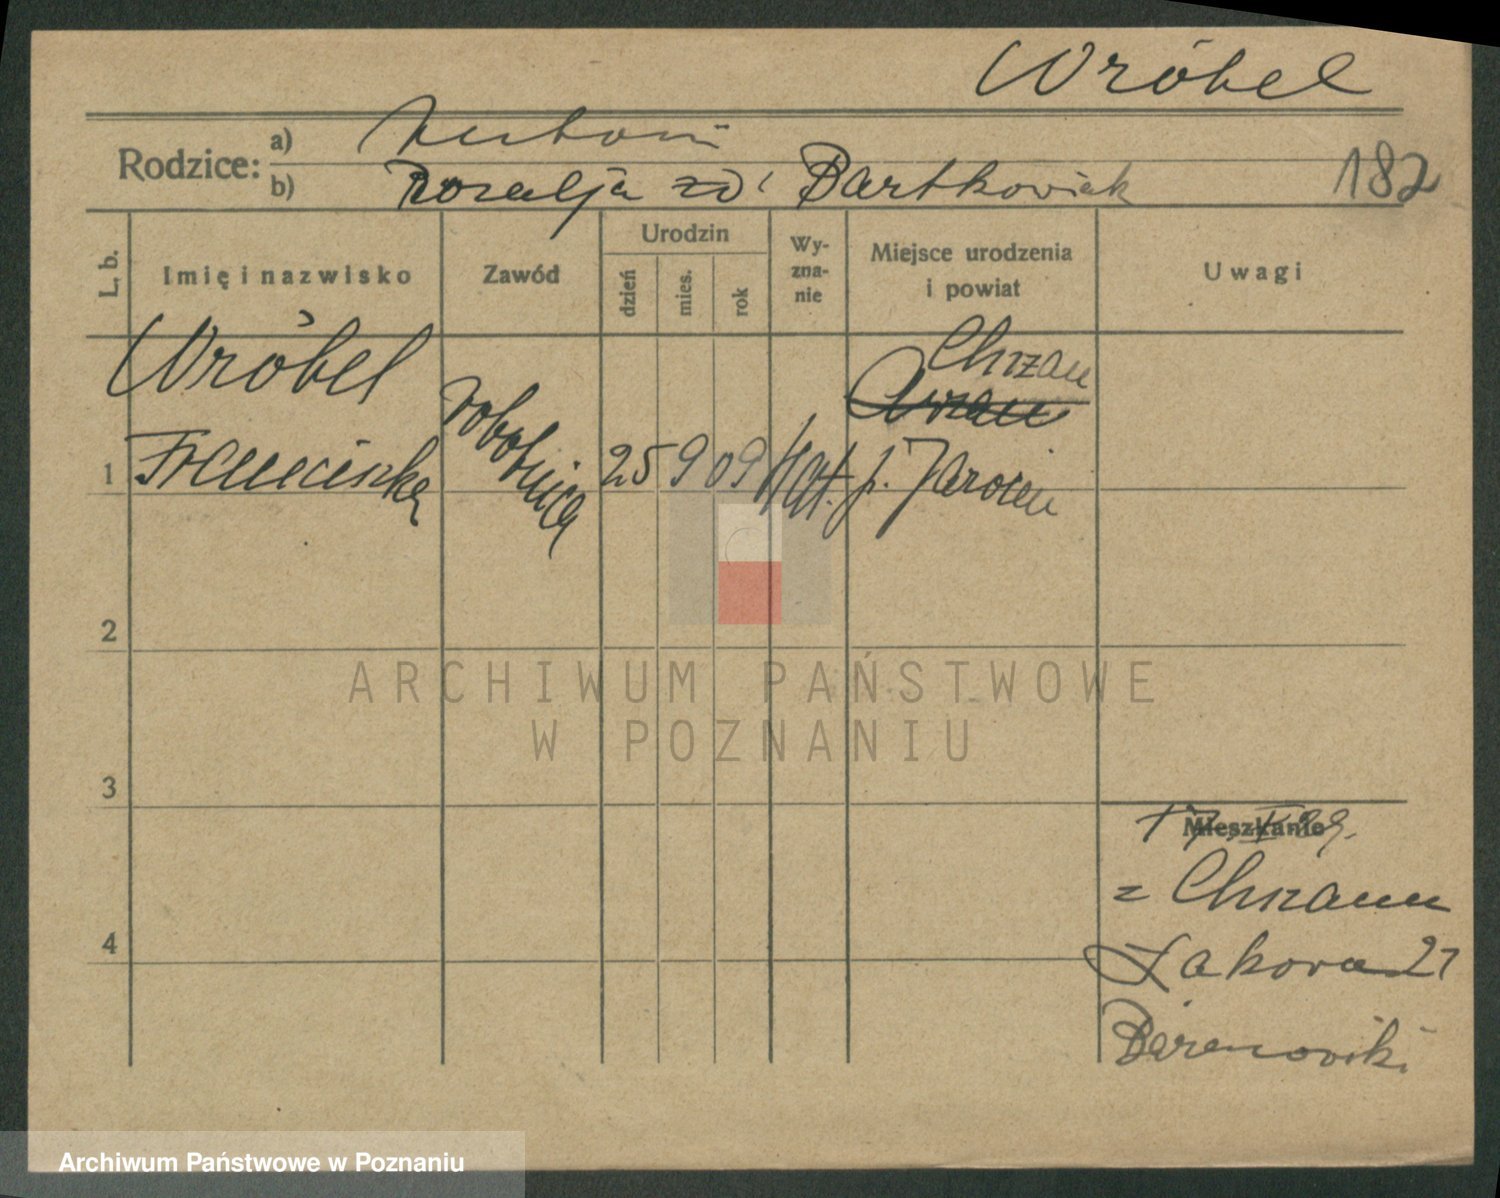 Wróbel
Rodzice:
a) Antoni
b) Rozalja zd. Bartkowiak
182
L. b.
Imię i nazwisko
Zawód
Urodzin
dzień
mies.
rok
Wy-
zna-
nie
Miejsce urodzenia
i powiat
Uwagi
Wróbel
1 Franciszka
robotnica
25 9 09
kat.
Chrzan
p. Jarocin
2
3
4
ARCHIWUM PAŃSTWOWE
W POZNANIU
Mieszkanie
z Chrzanu
Łąkowa 27
Archiwum Państwowe w Poznaniu